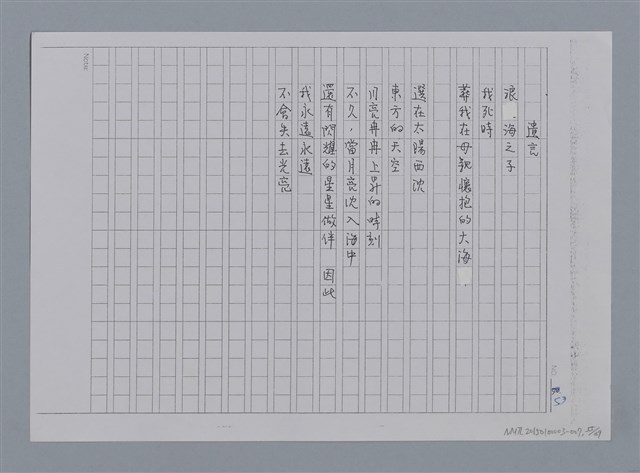 遺言
浪、海之子
我死時
葬我在母親懷抱的大海
選在太陽西沈
東方的天空
月亮冉冉上昇的時刻
不久,當月亮沈入海中
還有閃耀的星星做伴 因此
我永遠永遠
不會失去光亮
Notes:
NO.